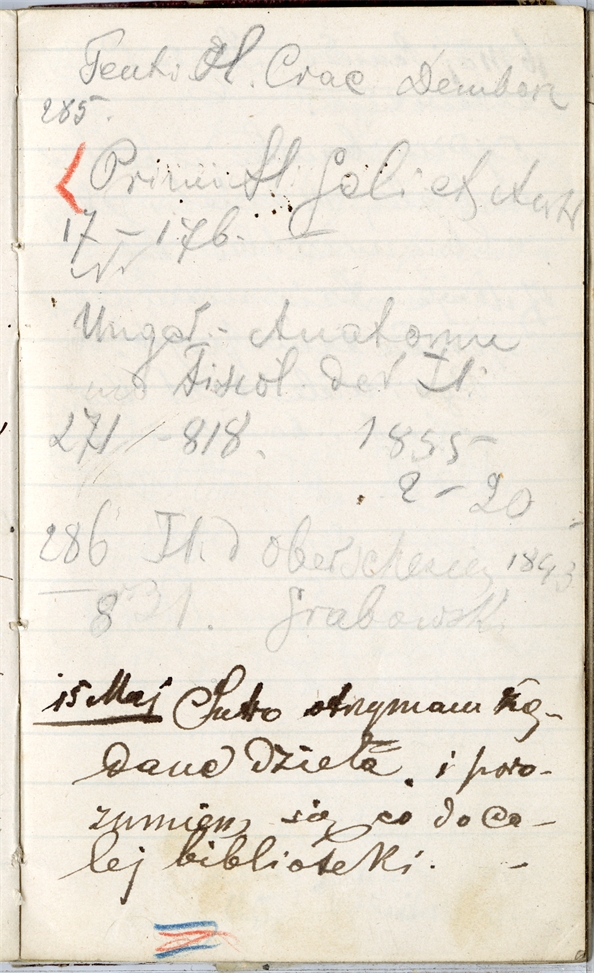 Fl. Crac Dembosz
285.
Primit Fl Galic et
17 – 176.
Ungar – Anatomie
und Fisiol. der
271 – 818. 1855
2 – 20
286 Fl. d Oberschlesien 1843
– 831. Grabowski
15 Maj Jutro otrzymam żą-
dane dzieła i poro-
zumiem się co do ca-
łej biblioteki. –